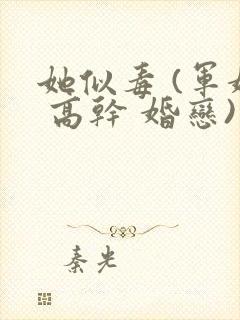 她似毒(軍婚
高幹 婚戀)
秦光